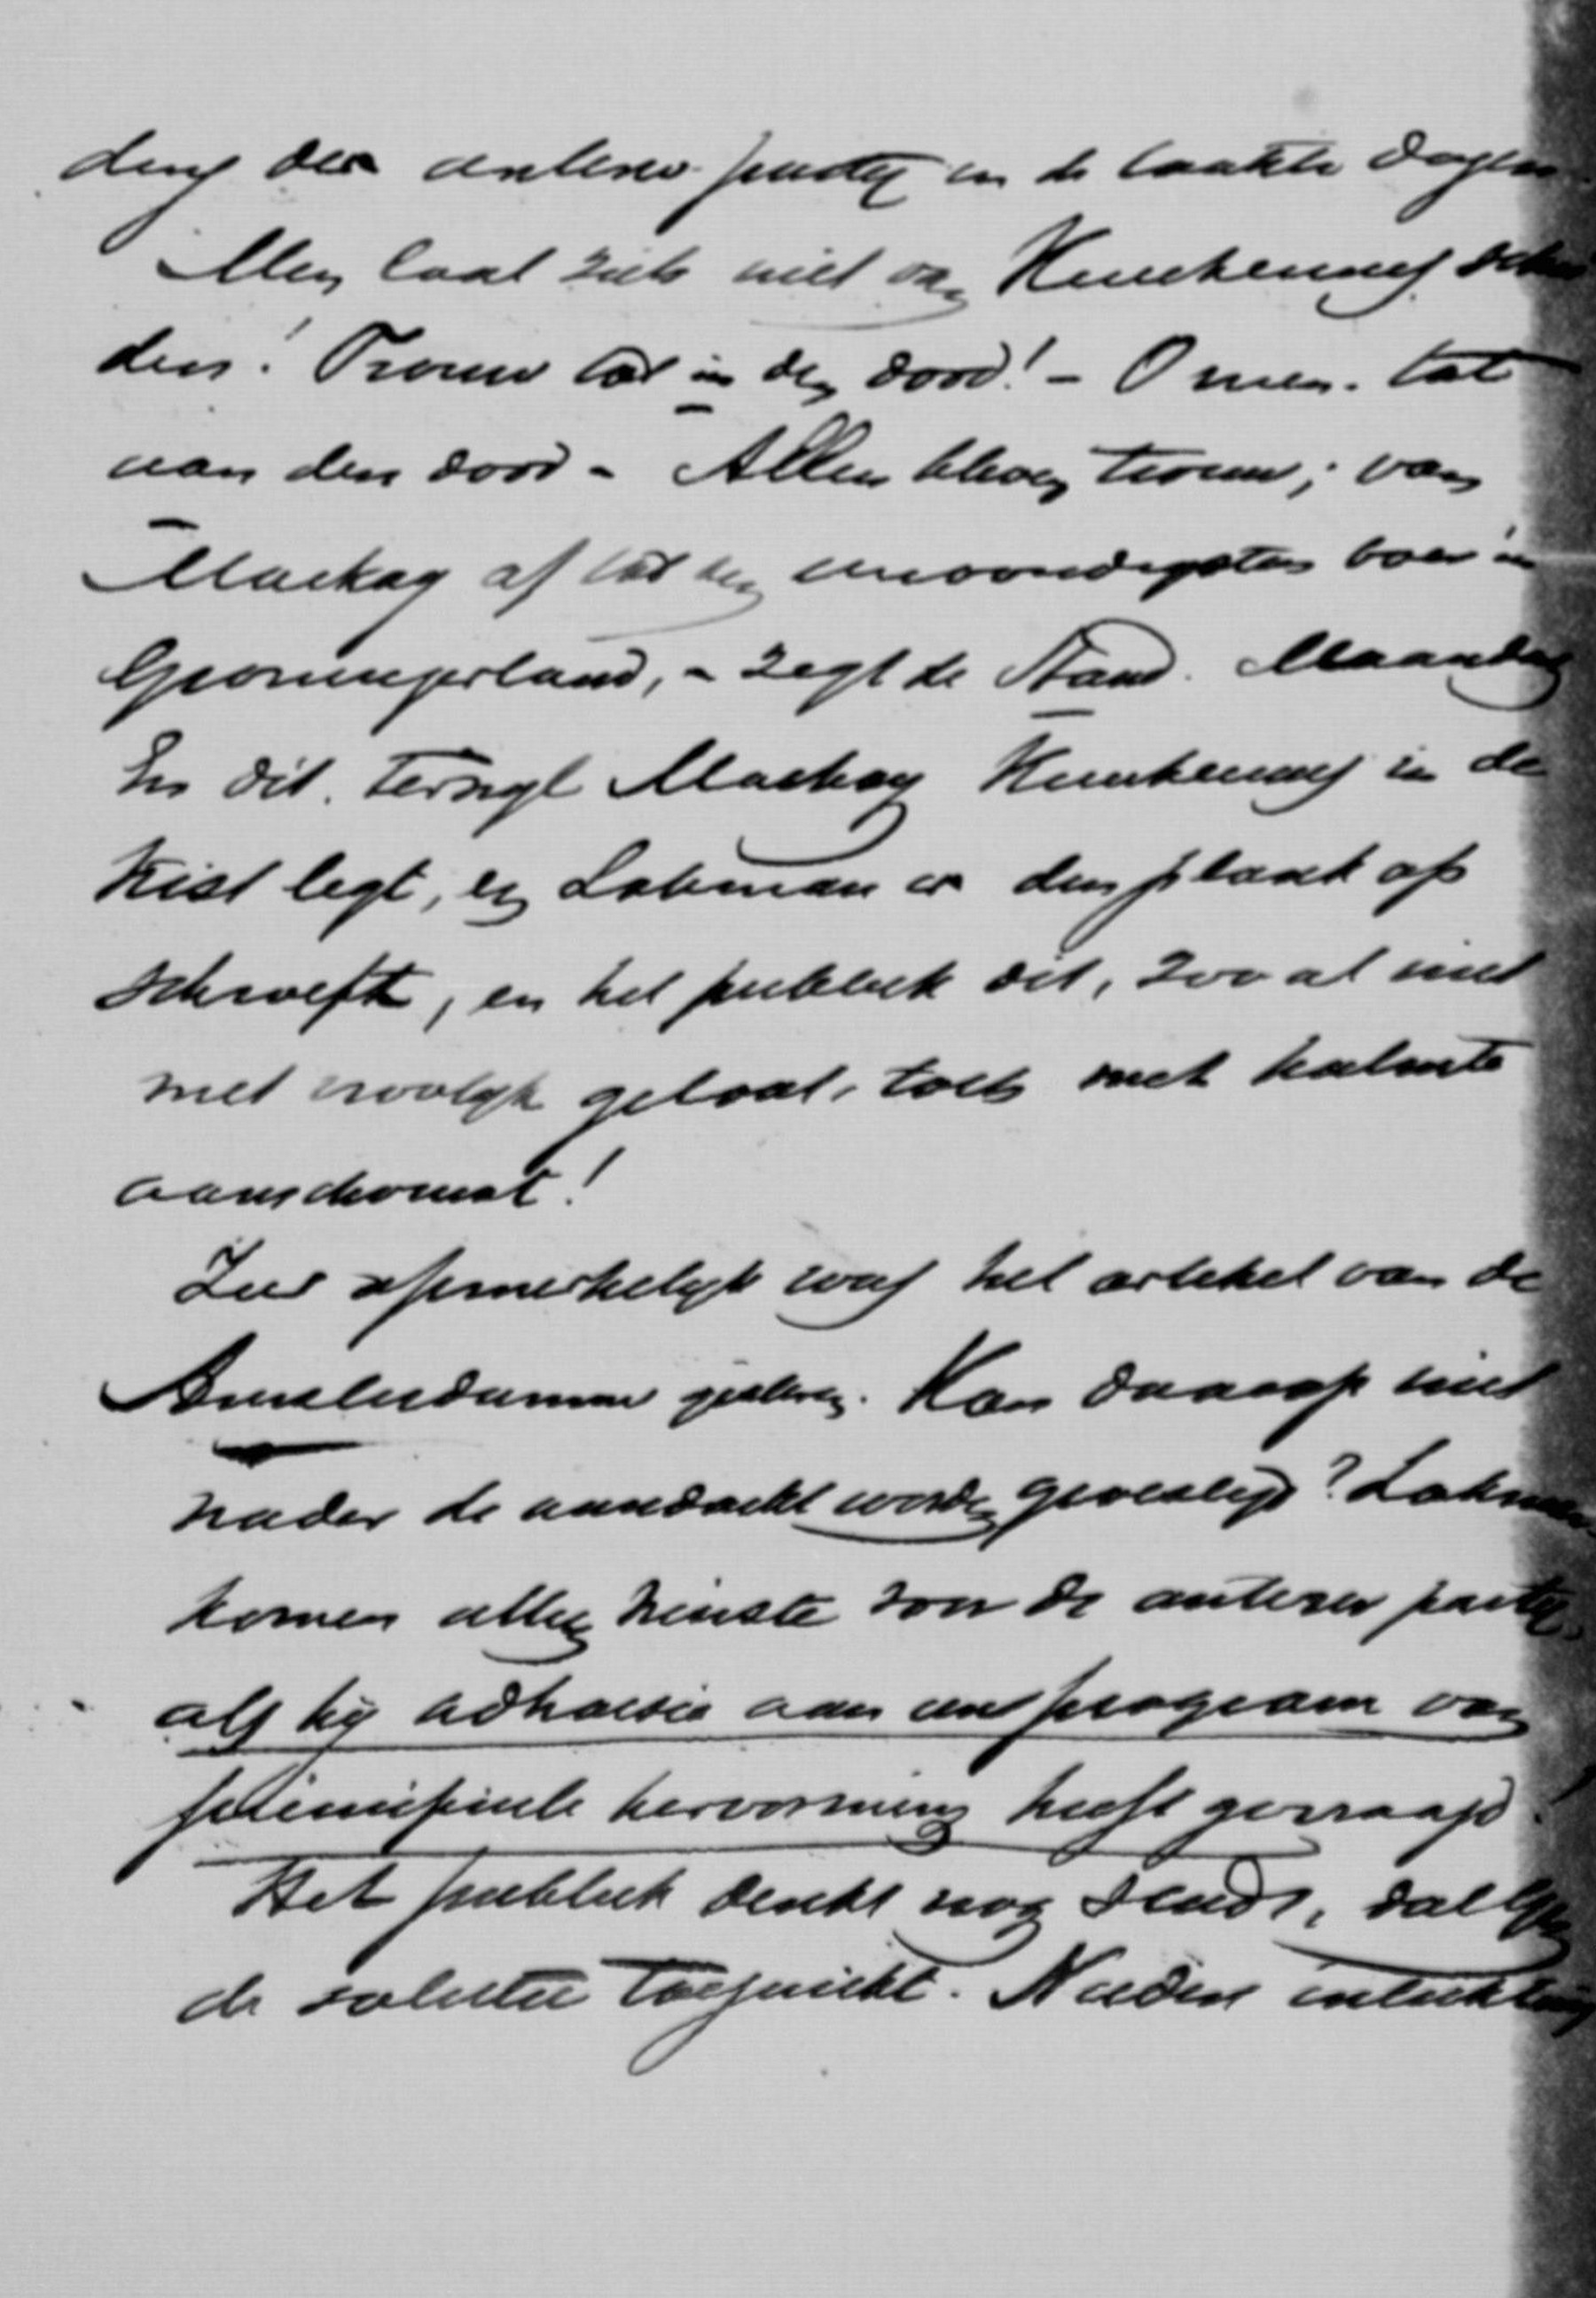 ding der antirev. partij in de laatste dagen.
Men laat zich niet van Keuchenius schei
den! Trouw tot in den dood! - O neen. tot
aan den dood - Allen bleven trouw; van
Mackay af tot den eenvoudigsten boer in
Groningerland, - zegt de Stand. Maandag
En dit. terwijl Mackay Keuchenius in de
kist legt, en Lohman er den plank op
schroeft, en het publiek dit, zoo al niet
met vroolijk gelaat, toch met kalmte
aanschouwt!
Zeer opmerkelijk was het artikel van de
Amsterdammer gisteren. Kan daarop niet
nader de aandacht worden gevestigd? Lohman
komen alleen kunste voor de antirev partij,
als hij adhaesie aan een program van
principieele hervorming heeft gevraagd!
Het publiek denkt nog steeds, dat
de solutie toejuicht. Nadere inlichting